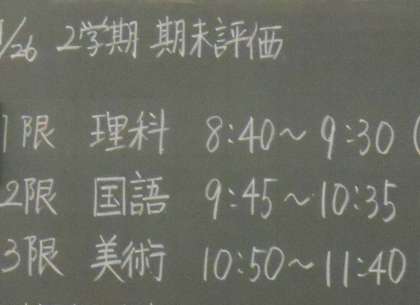 /26 2学期 期末評価
1限 理科 8:40〜9:30(
2限 国語 9:45〜10:35
3限 美術 10:50〜11:40